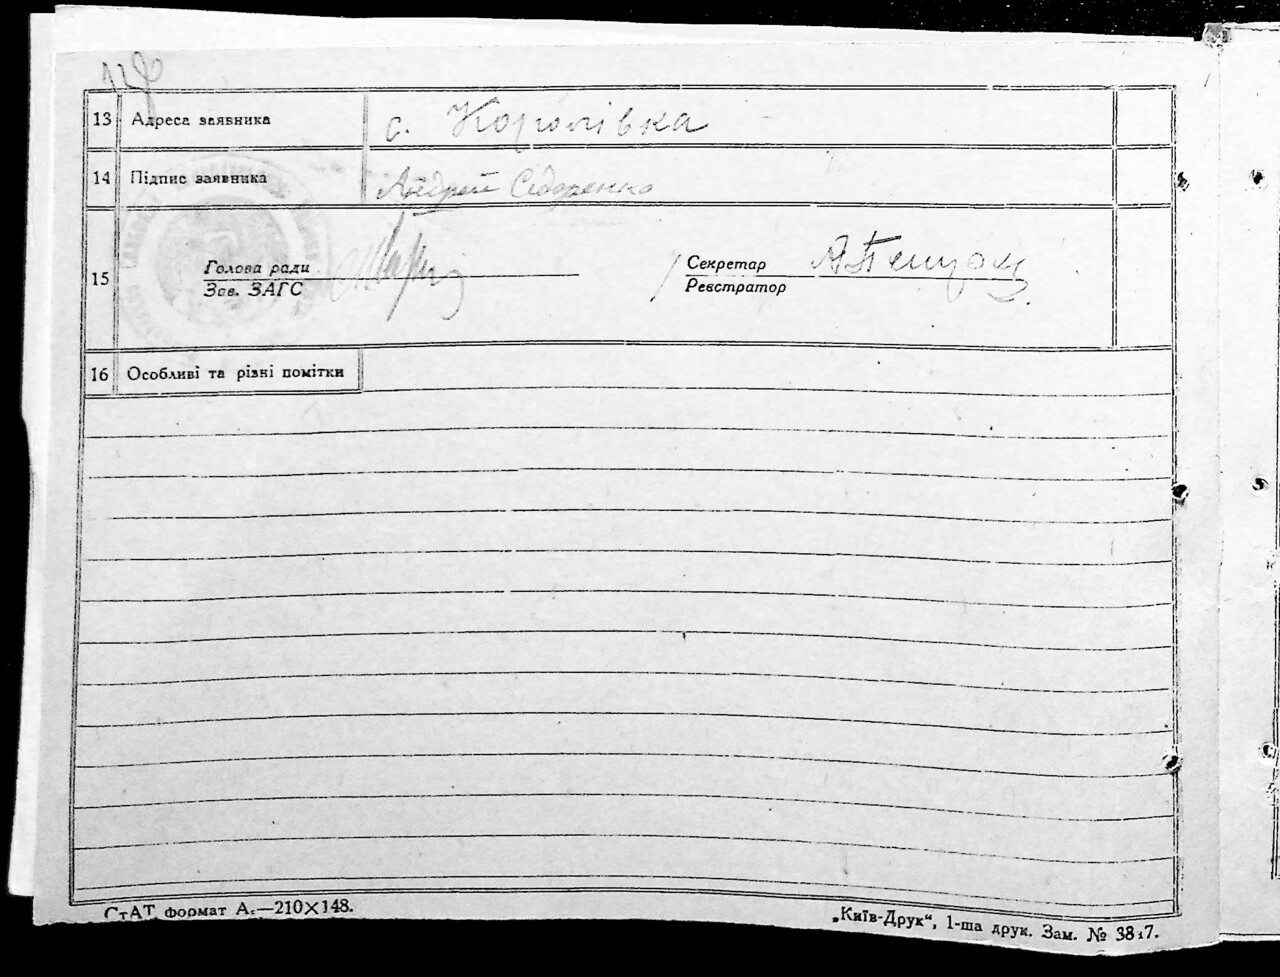 13 Адреса заявника с. Королівка
14 Підпис заявника Андрей Сідоренко
15 Голова ради Секретар
Зав. ЗАГС Реєстратор
16 Особливі та різні помітки
СтАТ формат А₅—210×148. „Київ-Друк“, 1-ша друк. Зам. №